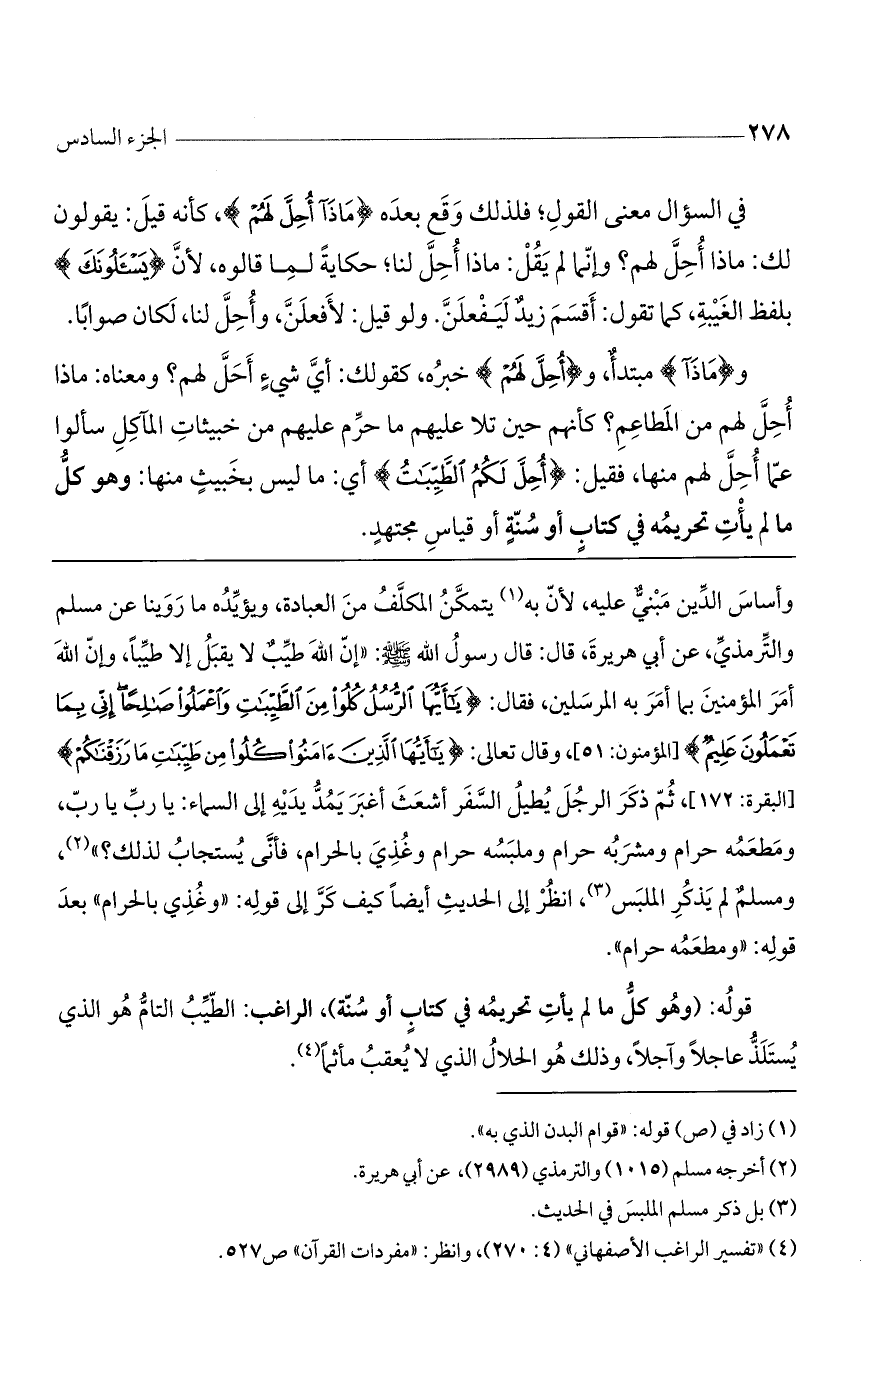 ٢٧٨ الجزء السادس
في السؤال معنى القولِ؛ فلذلك وَقَع بعدَه ﴿مَاذَآ أُحِلَّ لَهُمْ﴾، كأنه قيلَ: يقولون
لك: ماذا أُحِلَّ لهم؟ وإنّما لم يَقُلْ: ماذا أُحِلَّ لنا؛ حكايةً لـمِـا قالوه، لأنَّ ﴿يَسْـَٔلُونَكَ﴾
بلفظ الغَيْبةِ، كما تقول: أَقسَمَ زيدٌ لَيَـفْعلَنَّ. ولو قيل: لأَفعلَنَّ، وأُحِلَّ لنا، لَكان صوابًا.
و﴿مَاذَآ﴾ مبتدأٌ، و﴿أُحِلَّ لَهُمْ﴾ خبرُه، كقولك: أيَّ شيءٍ أَحَلَّ لهم؟ ومعناه: ماذا
أُحِلَّ لهم من المَطاعِمِ؟ كأنهم حين تلا عليهم ما حرِّم عليهم من خبيثاتِ المآكلِ سألوا
عمّا أُحِلَّ لهم منها، فقيل: ﴿أُحِلَّ لَكُمُ ٱلطَّيِّبَـٰتُ﴾ أي: ما ليس بخَبيثٍ منها: وهو كلُّ
ما لم يأْتِ تحريمُه في كتابٍ أو سُنّةٍ أو قياسِ مجتهدٍ.
وأساسَ الدِّين مَبْنيٌّ عليه، لأنّ به(١) يتمكَّنُ المكلَّفُ منَ العبادة، ويؤيِّدُه ما رَوَينا عن مسلم
والتِّرمذيِّ، عن أبي هريرةَ، قال: قال رسولُ الله ﷺ: «إنّ اللهَ طيِّبٌ لا يقبَلُ إلا طيِّباً، وإنّ اللهَ
أمَرَ المؤمنينَ بما أمَرَ به المرسَلين، فقال: ﴿يَـٰٓأَيُّهَا ٱلرُّسُلُ كُلُوا۟ مِنَ ٱلطَّيِّبَـٰتِ وَٱعْمَلُوا۟ صَـٰلِحًا ۖ إِنِّى بِمَا
تَعْمَلُونَ عَلِيمٌ﴾ [المؤمنون: ٥١]، وقال تعالى: ﴿يَـٰٓأَيُّهَا ٱلَّذِينَ ءَامَنُوا۟ كُلُوا۟ مِن طَيِّبَـٰتِ مَا رَزَقْنَـٰكُمْ﴾
[البقرة: ١٧٢]، ثُمّ ذكَرَ الرجُلَ يُطيلُ السَّفَر أشعَثَ أغبَرَ يَمُدُّ يدَيْهِ إلى السماء: يا ربِّ يا ربّ،
ومَطعَمُه حرام ومشرَبُه حرام وملبَسُه حرام وغُذِيَ بالحرام، فأنَّى يُستجابُ لذلك؟»(٢)،
ومسلمٌ لم يَذكُرِ الملبَس(٣)، انظُرْ إلى الحديثِ أيضاً كيف كَرَّ إلى قولِه: «وغُذِي بالحرام» بعدَ
قولِه: «ومطعَمُه حرام».
قولُه: (وهُو كلُّ ما لم يأتِ تحريمُه في كتابٍ أو سُنّة)، الراغب: الطّيِّبُ التامُّ هُو الذي
يُستَلَذُّ عاجلاً وآجلاً، وذلك هُو الحلالُ الذي لا يُعقبُ مأثماً(٤).
(١) زاد في (ص) قوله: «قوام البدن الذي به».
(٢) أخرجه مسلم (١٠١٥) والترمذي (٢٩٨٩)، عن أبي هريرة.
(٣) بل ذكر مسلم الملبسَ في الحديث.
(٤) «تفسير الراغب الأصفهاني» (٤: ٢٧٠)، وانظر: «مفردات القرآن» ص٥٢٧.